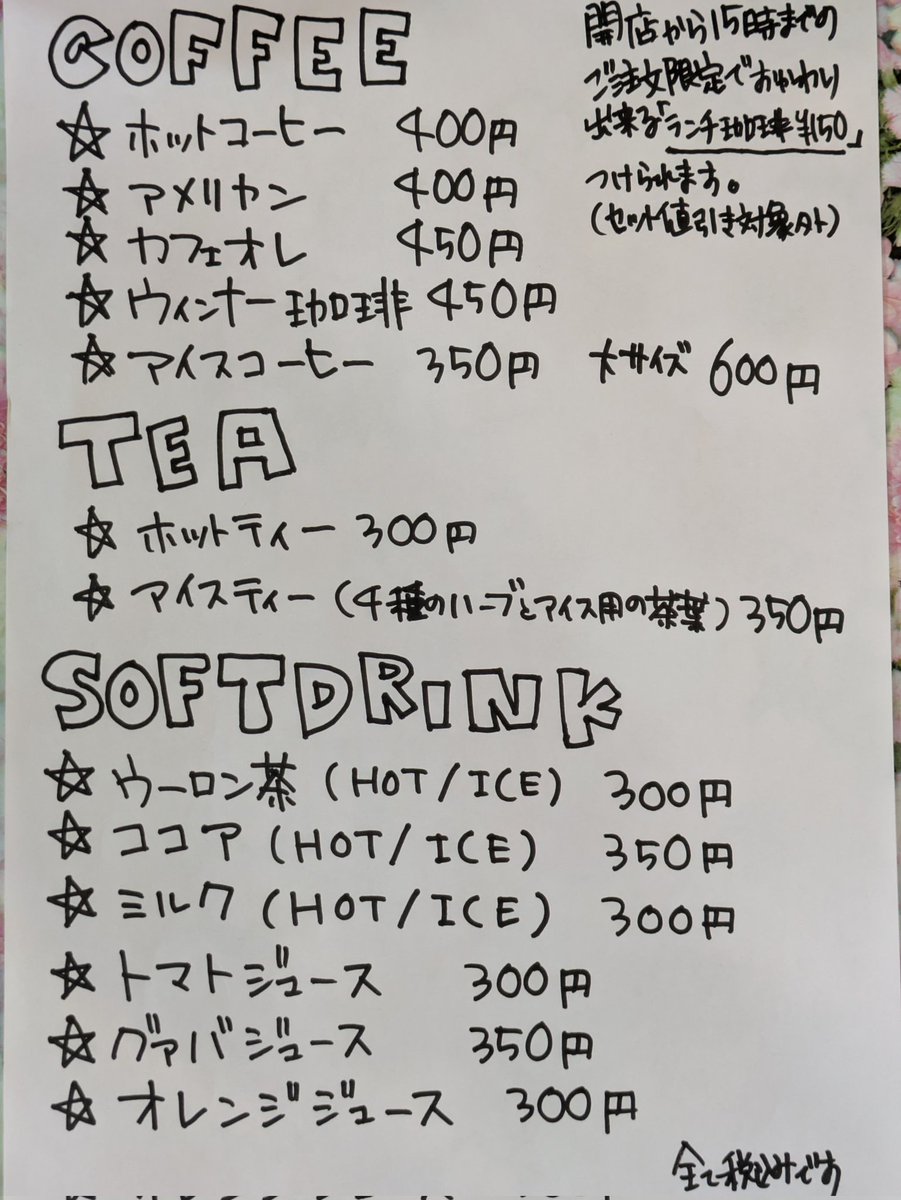 COFFEE
☆ ホットコーヒー 400円
☆ アメリカン 400円
☆ カフェオレ 450円
☆ ウィンナー珈琲 450円
☆ アイスコーヒー 350円 大サイズ 600円
開店から15時までの
ご注文限定でおかわり
出来る「ランチ珈琲¥150」
つけられます。
(セット値引き対象外)
TEA
☆ ホットティー 300円
☆ アイスティー (4種のハーブとアイス用の茶葉) 350円
SOFTDRINK
☆ ウーロン茶 (HOT/ICE) 300円
☆ ココア (HOT/ICE) 350円
☆ ミルク (HOT/ICE) 300円
☆ トマトジュース 300円
☆ グァバジュース 350円
☆ オレンジジュース 300円
全て税込みです